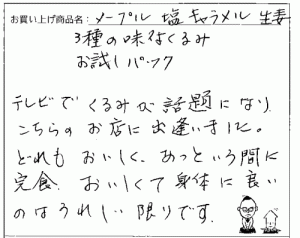 お買い上げ商品名：メープル 塩キャラメル 生姜
3種の味なくるみ
お試しパック
テレビでくるみが話題になり
こちらのお店に出逢いました。
どれもおいしく、あっという間に
完食、おいしくて身体に良い
のはうれしい限りです。